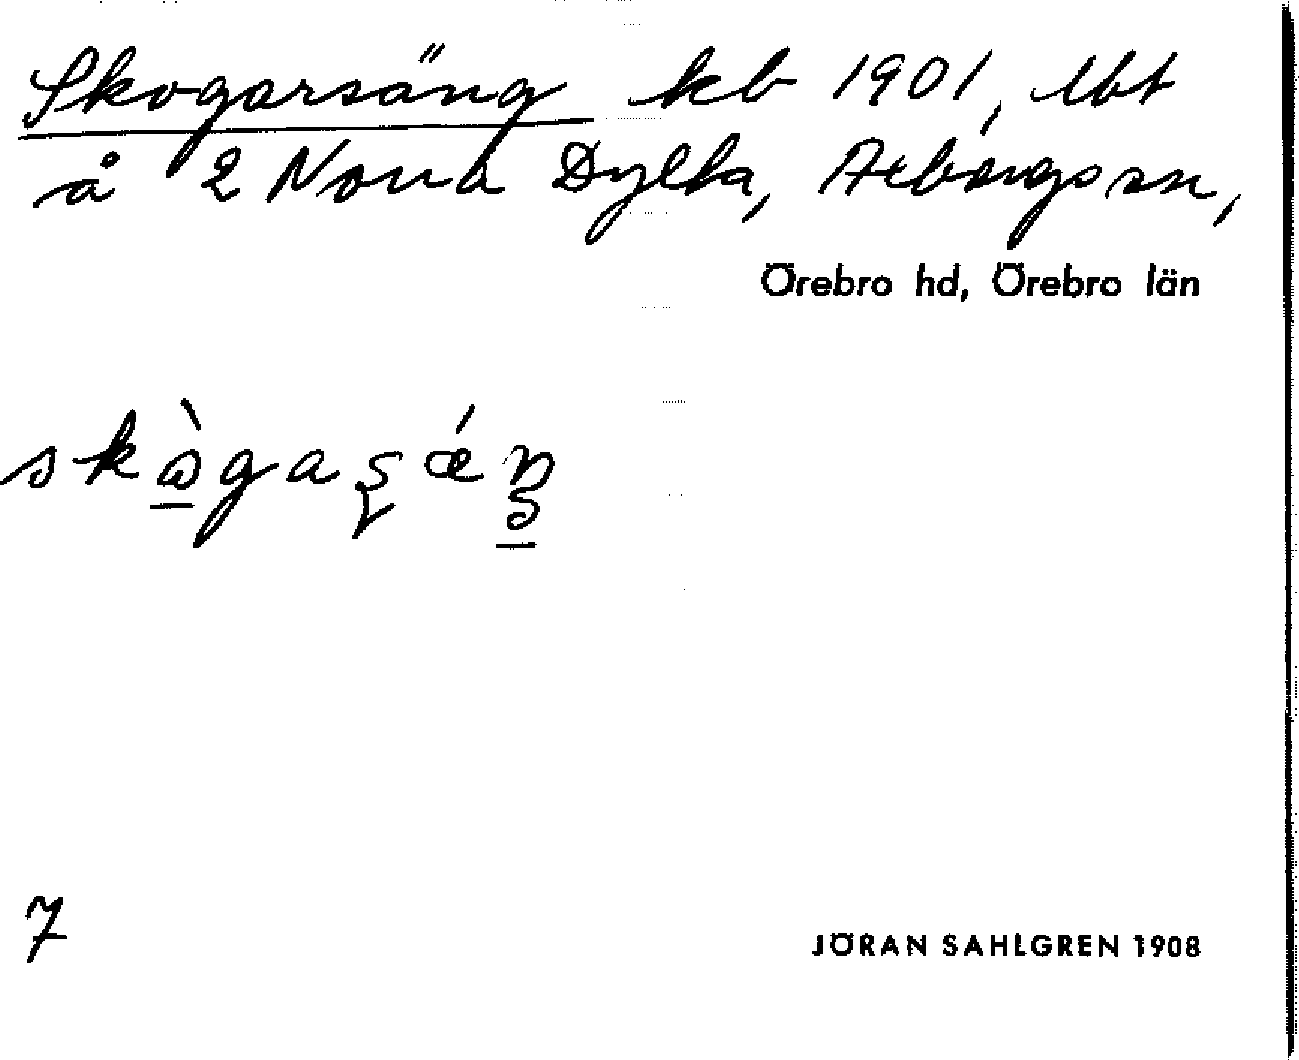 Skogarsäng kb 1901, lbt
å 2 Norra Dylta, Axbergs sn,
Örebro hd, Örebro län
skògaʂǽŋ
7
JÖRAN SAHLGREN 1908